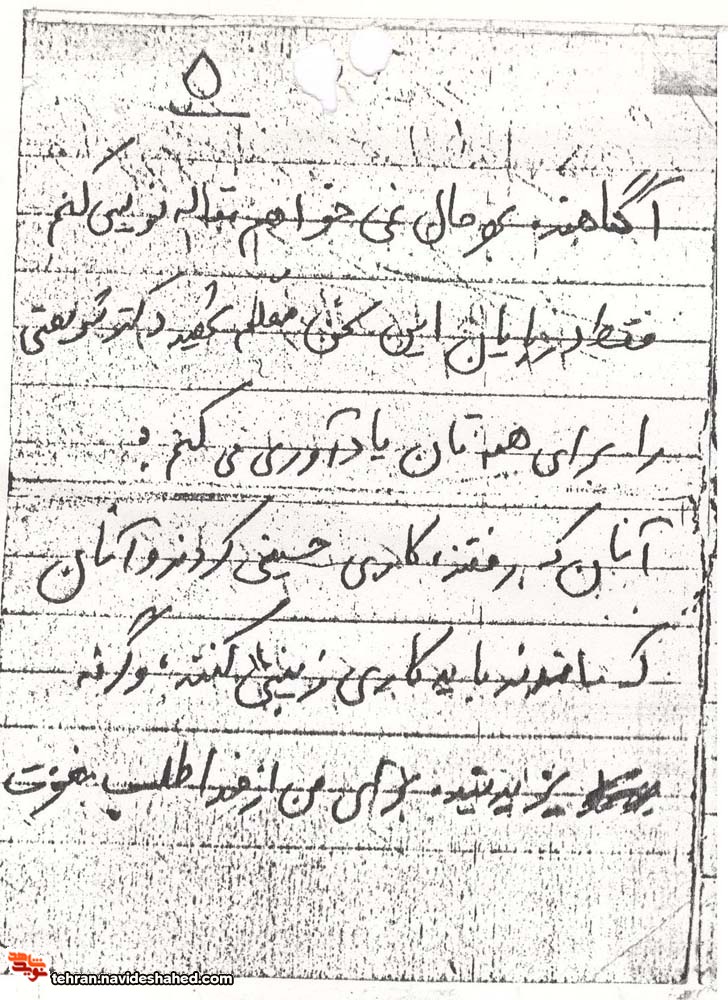 ۵
آگاهند. بهر حال نمی خواهم مقاله نویسی کنم
فقط در پایان این سخن معلم شهید دکتر شریعتی
را برای همه تان یادآوری می کنم :
آنان که رفتند، کاری حسینی کردند و آنان
که ماندند باید کاری زینبی کنند، وگرنه
یزیدیند. برای من از خدا طلب مغفرت
نوید شاهد
tehran.navideshahed.com